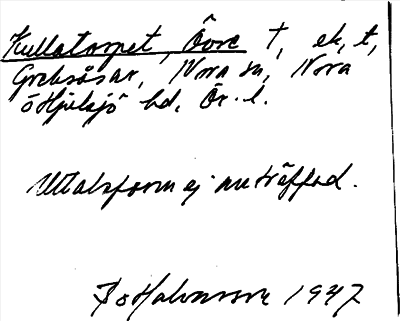 Kullatorpet, Övre t, ek, t,
Greksåsar, Nora sn, Nora
o Hjulsjö hd, Ör. l.
Uttalsform ej anträffad.
Bo Halvarsson 1947